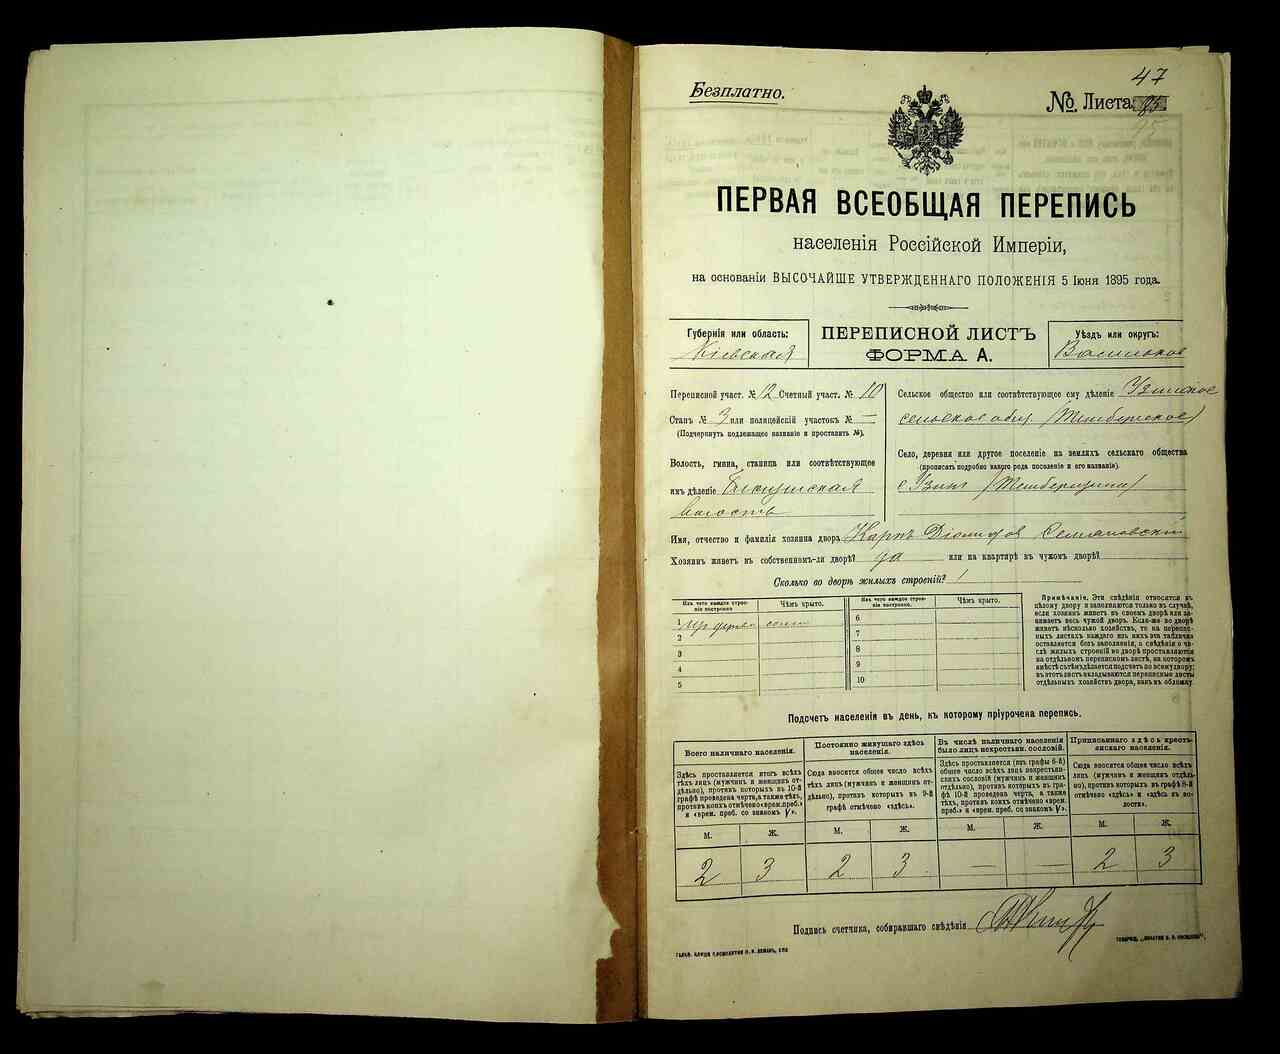 47
Безплатно.
№ Листа
95
ПЕРВАЯ ВСЕОБЩАЯ ПЕРЕПИСЬ
населенія Россійской Имперіи,
на основаніи ВЫСОЧАЙШЕ УТВЕРЖДЕННАГО ПОЛОЖЕНІЯ 5 Іюня 1895 года.
Губернія или область:
Кіевская
ПЕРЕПИСНОЙ ЛИСТЪ
ФОРМА А.
Уѣздъ или округъ:
Васильков
Переписной участ. № 12 Счетный участ. № 10
Станъ № 3 или полицейскій участокъ № —
(Подчеркнуть подлежащее названіе и проставить №).
Волость, гмина, станица или соотвѣтствующее
имъ дѣленіе
волость
Сельское общество или соотвѣтствующее ему дѣленіе Узинское
сельское общ.
Село, деревня или другое поселеніе на земляхъ сельскаго общества
(прописать подробно какого рода поселеніе и его названіе).
с Узинъ
Имя, отчество и фамилія хозяина двора Карпъ
Хозяинъ живетъ въ собственномъ-ли дворѣ? да или на квартирѣ въ чужомъ дворѣ?
Сколько во дворѣ жилыхъ строеній? 1
Изъ чего каждое строеніе построено. Чѣмъ крыто. Изъ чего каждое строеніе построено. Чѣмъ крыто.
1 6
2 7
3 8
4 9
5 10
Примѣчаніе. Эти свѣдѣнія относятся къ
цѣлому двору и заполняются только въ случаѣ,
если хозяинъ живетъ въ своемъ дворѣ или занимаетъ
весь чужой дворъ. Если-же во дворѣ
живетъ нѣсколько хозяйствъ, то на переписныхъ
листахъ каждаго изъ нихъ эта табличка
оставляется безъ заполненія, а свѣдѣнія о числѣ
жилыхъ строеній во дворѣ проставляются
на отдѣльномъ переписномъ листѣ, на которомъ
вмѣстѣ съ тѣмъ дѣлается подсчетъ по всему двору;
въ этотъ листъ вкладываются переписные листы
отдѣльныхъ хозяйствъ двора, какъ въ обложку.
Подсчетъ населенія въ день, къ которому пріурочена перепись.
Всего наличнаго населенія.
Здѣсь проставляется итогъ всѣхъ
тѣхъ лицъ (мужчинъ и женщинъ отдѣльно),
противъ которыхъ въ 10-й
графѣ проведена черта, а также тѣхъ,
противъ коихъ отмѣчено «врем. преб.»
и «врем. преб. со знакомъ V».
Постоянно живущаго здѣсь
населенія.
Сюда вносится общее число всѣхъ
тѣхъ лицъ (мужчинъ и женщинъ отдѣльно),
противъ которыхъ въ 9-й
графѣ отмѣчено «здѣсь».
Въ числѣ наличнаго населенія
было лицъ некрестьян. сословій.
Здѣсь проставляется (изъ графы 6-й)
общее число всѣхъ лицъ некрестьянскихъ
сословій (мужчинъ и женщинъ
отдѣльно), противъ которыхъ въ графѣ
10-й проведена черта, а также
тѣхъ, противъ коихъ отмѣчено «врем.
преб.» и «врем. преб. со знакомъ V».
Приписаннаго здѣсь крестьянскаго
населенія.
Сюда вносится общее число всѣхъ
лицъ (мужчинъ и женщинъ отдѣльно),
противъ которыхъ въ графѣ 8-й
отмѣчено «здѣсь» и «здѣсь въ волости».
М. Ж. М. Ж. М. Ж. М. Ж.
2 3 2 3 — — 2 3
Подпись счетчика, собиравшаго свѣдѣнія